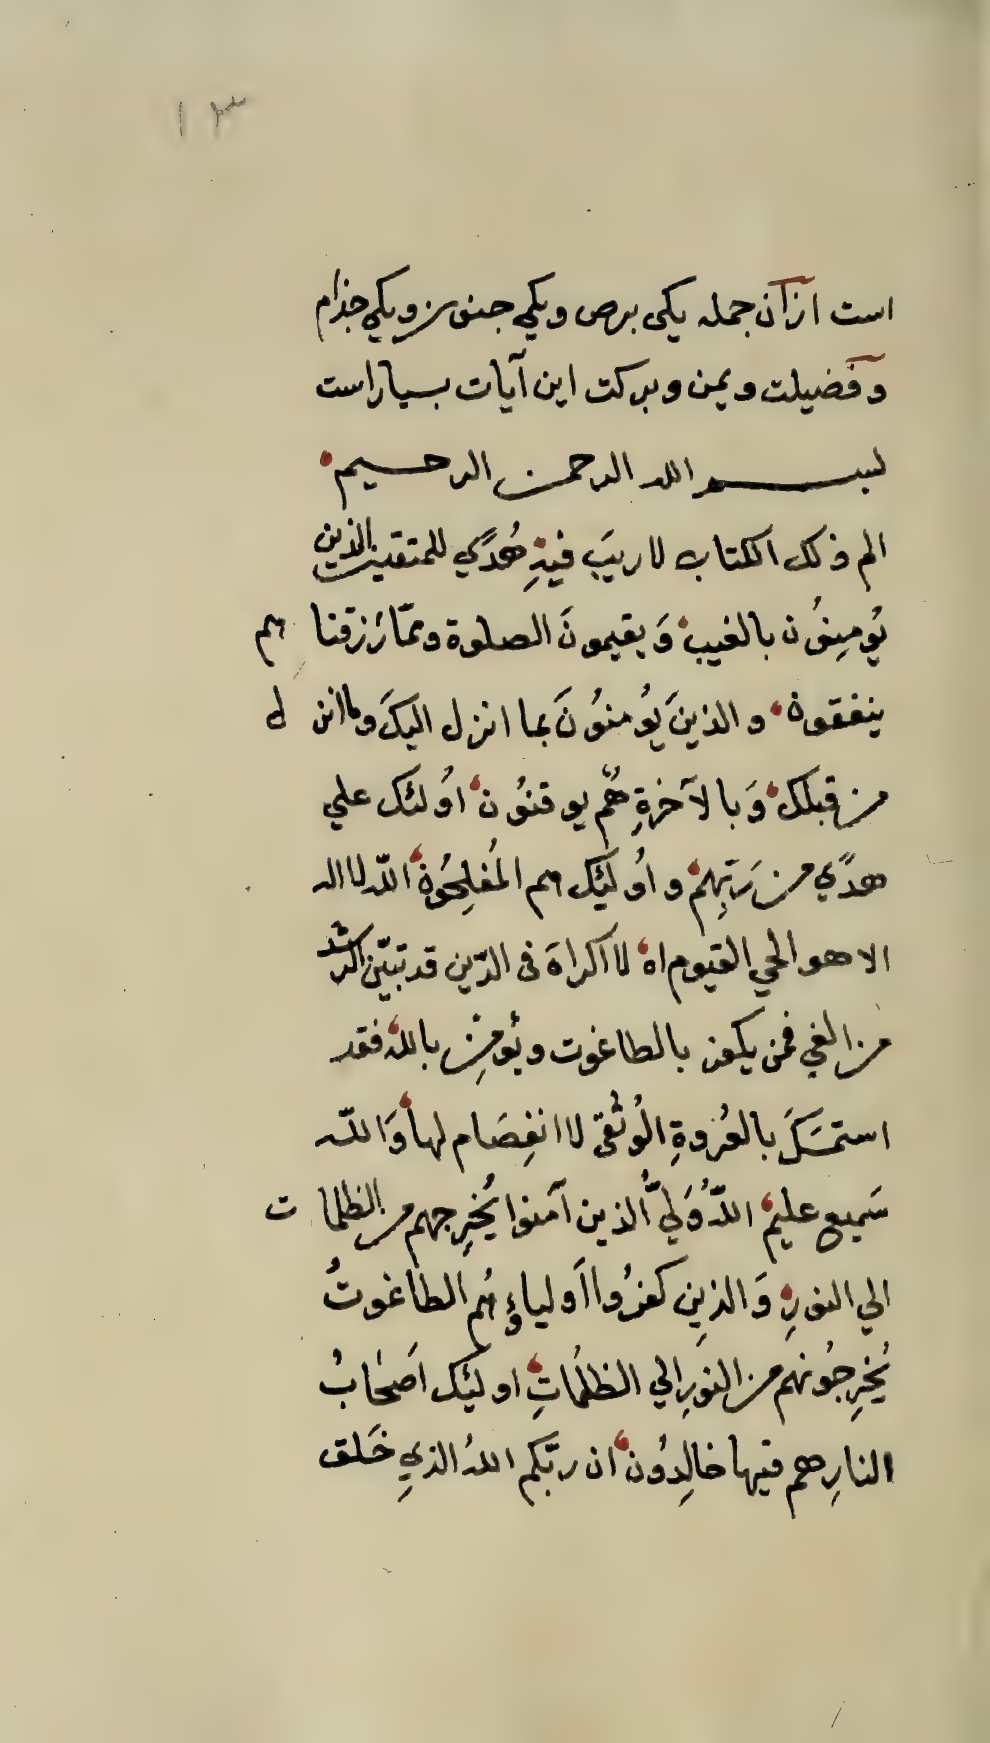 ۱۳
است ازآن جمله یکی برص ویکی جنون ویکی جذام
وفضیلت ویمن وبرکت این آیات بسیاراست
بسم الله الرحمن الرحیم
الم ذلک الکتاب لا ریبَ فیهِ هُدًي للمتقین الذین
یُومِنوُن بالغیب وَیقیمونَ الصلوة وممّا رَزقنا هم
ینفقون والذینَ یُومنوُنَ بما انزل الیکَ وما انزل
من قبلک وَبالآخرةِ هُم یوقنوُن اوُلئک علي
هدًي من رَبِهِم واوُلئِک هم المُفلِحُون اللّه لا اله
الا هو الحي القیوم اه لا اکراهَ فی الدّین قد تبیّن الرشد
من الغي فمن یکفر بالطاغوت ویُومِن بالله فقد
استمسَکَ بالعُروةِ الوُثقی لا انفِصَام لها وَاللّه
سَمیع علیم اللّهُ وَلِيُّ الذین آمَنوا یُخرِجهم من الظلمات
الي النورِ وَالذینِ کفرُوا اَولیاؤهُم الطاغوتُ
یُخرِجُونهم من النورِ الي الظلُماتِ اولئِک اَصحٰابُ
النارِ هم فیها خالِدوُن ان ربّکم اللهُ الذيِ خَلق